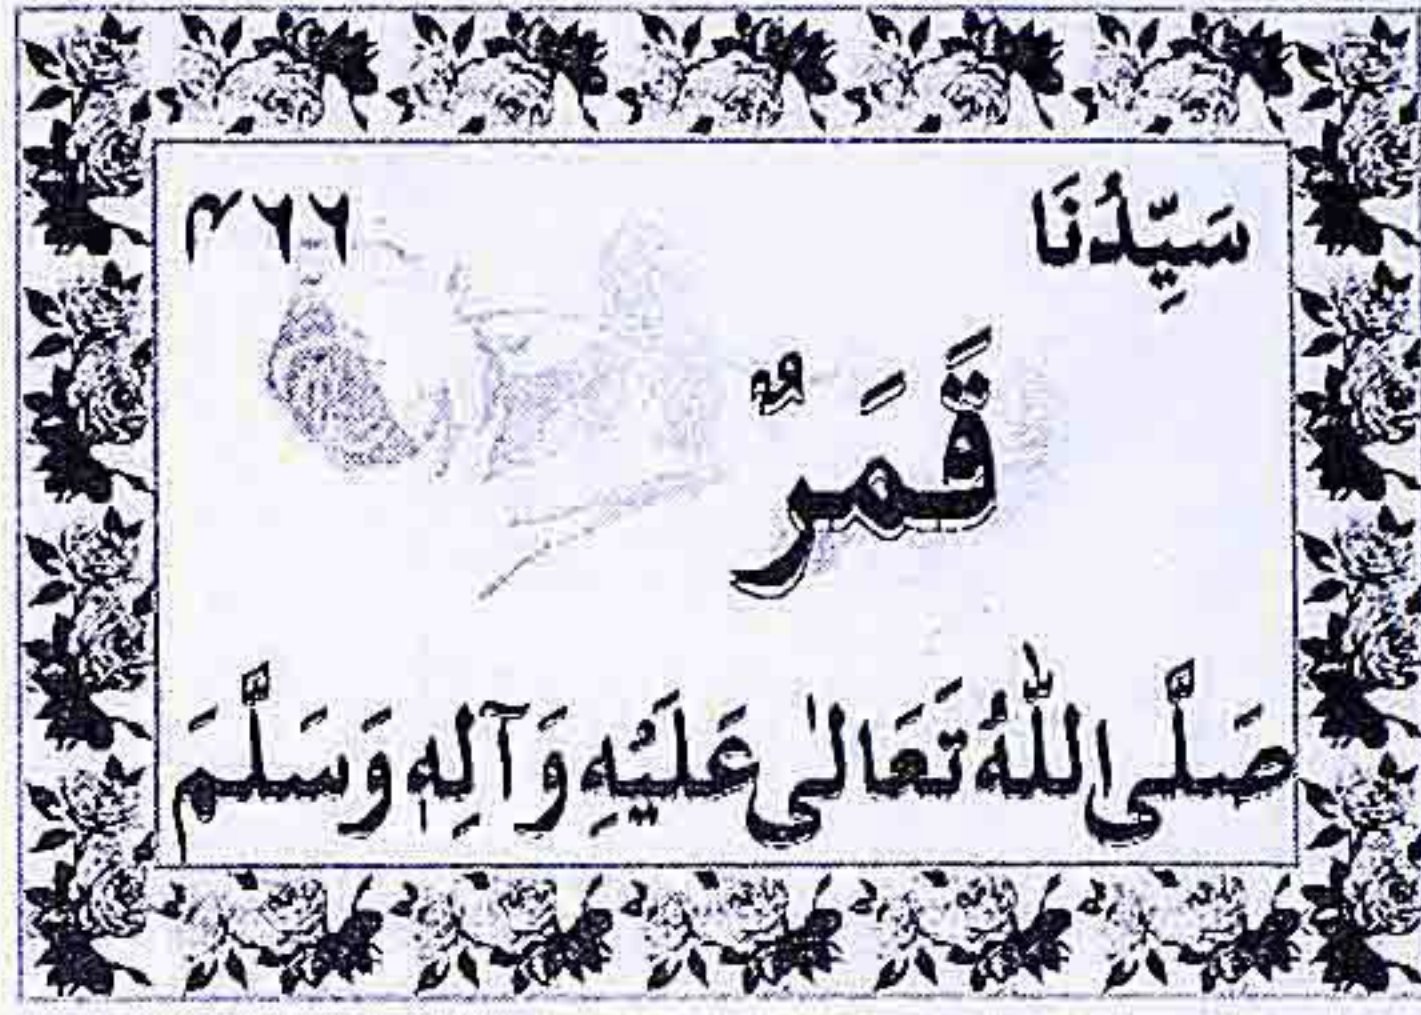 سَيِّدُنَا ۴۶۶
قَمَرٌ
صَلَّى اللّٰهُ تَعَالٰى عَلَيْهِ وَآلِهٖ وَسَلَّمَ